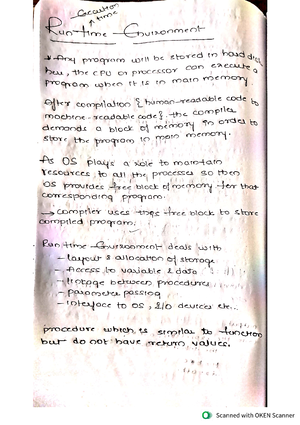 Execution
↑ time
Run-time Environment
→ Any program will be stored in hard disk
but, the CPU or processor can execute a
program when it is in main memory.
After compilation {human-readable code to
machine-readable code}, the compiler
demands a block of memory in order to
store the program in main memory.
As OS plays a role to maintain
resources to all the processes so then
OS provides free block of memory for that
corresponding program.
→ compiler uses this free block to store
compiled program.
Run time Environment deals with
- layout & allocation of storage
- Access to variable & data
- linkage between procedures
- parameter passing
- interface to OS, I/O devices etc...
procedure which is similar to function
but do not have return values.
Scanned with OKEN Scanner